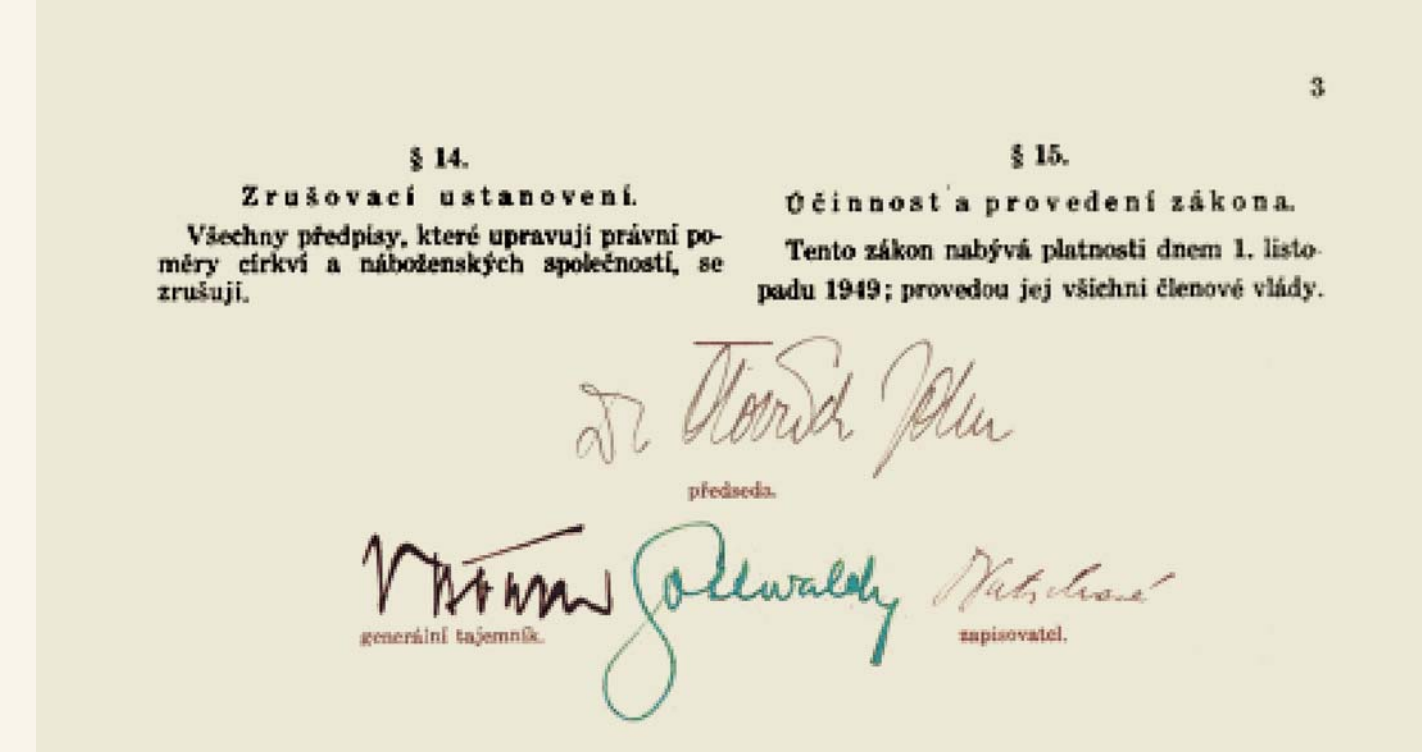 3
§ 14.
Zrušovací ustanovení.
Všechny předpisy, které upravují právní po-
měry církví a náboženských společností, se
zrušují.
§ 15.
Účinnost a provedení zákona.
Tento zákon nabývá platnosti dnem 1. listo-
padu 1949; provedou jej všichni členové vlády.
Dr Oldřich John
předseda.
Gottwald
generální tajemník.
zapisovatel.